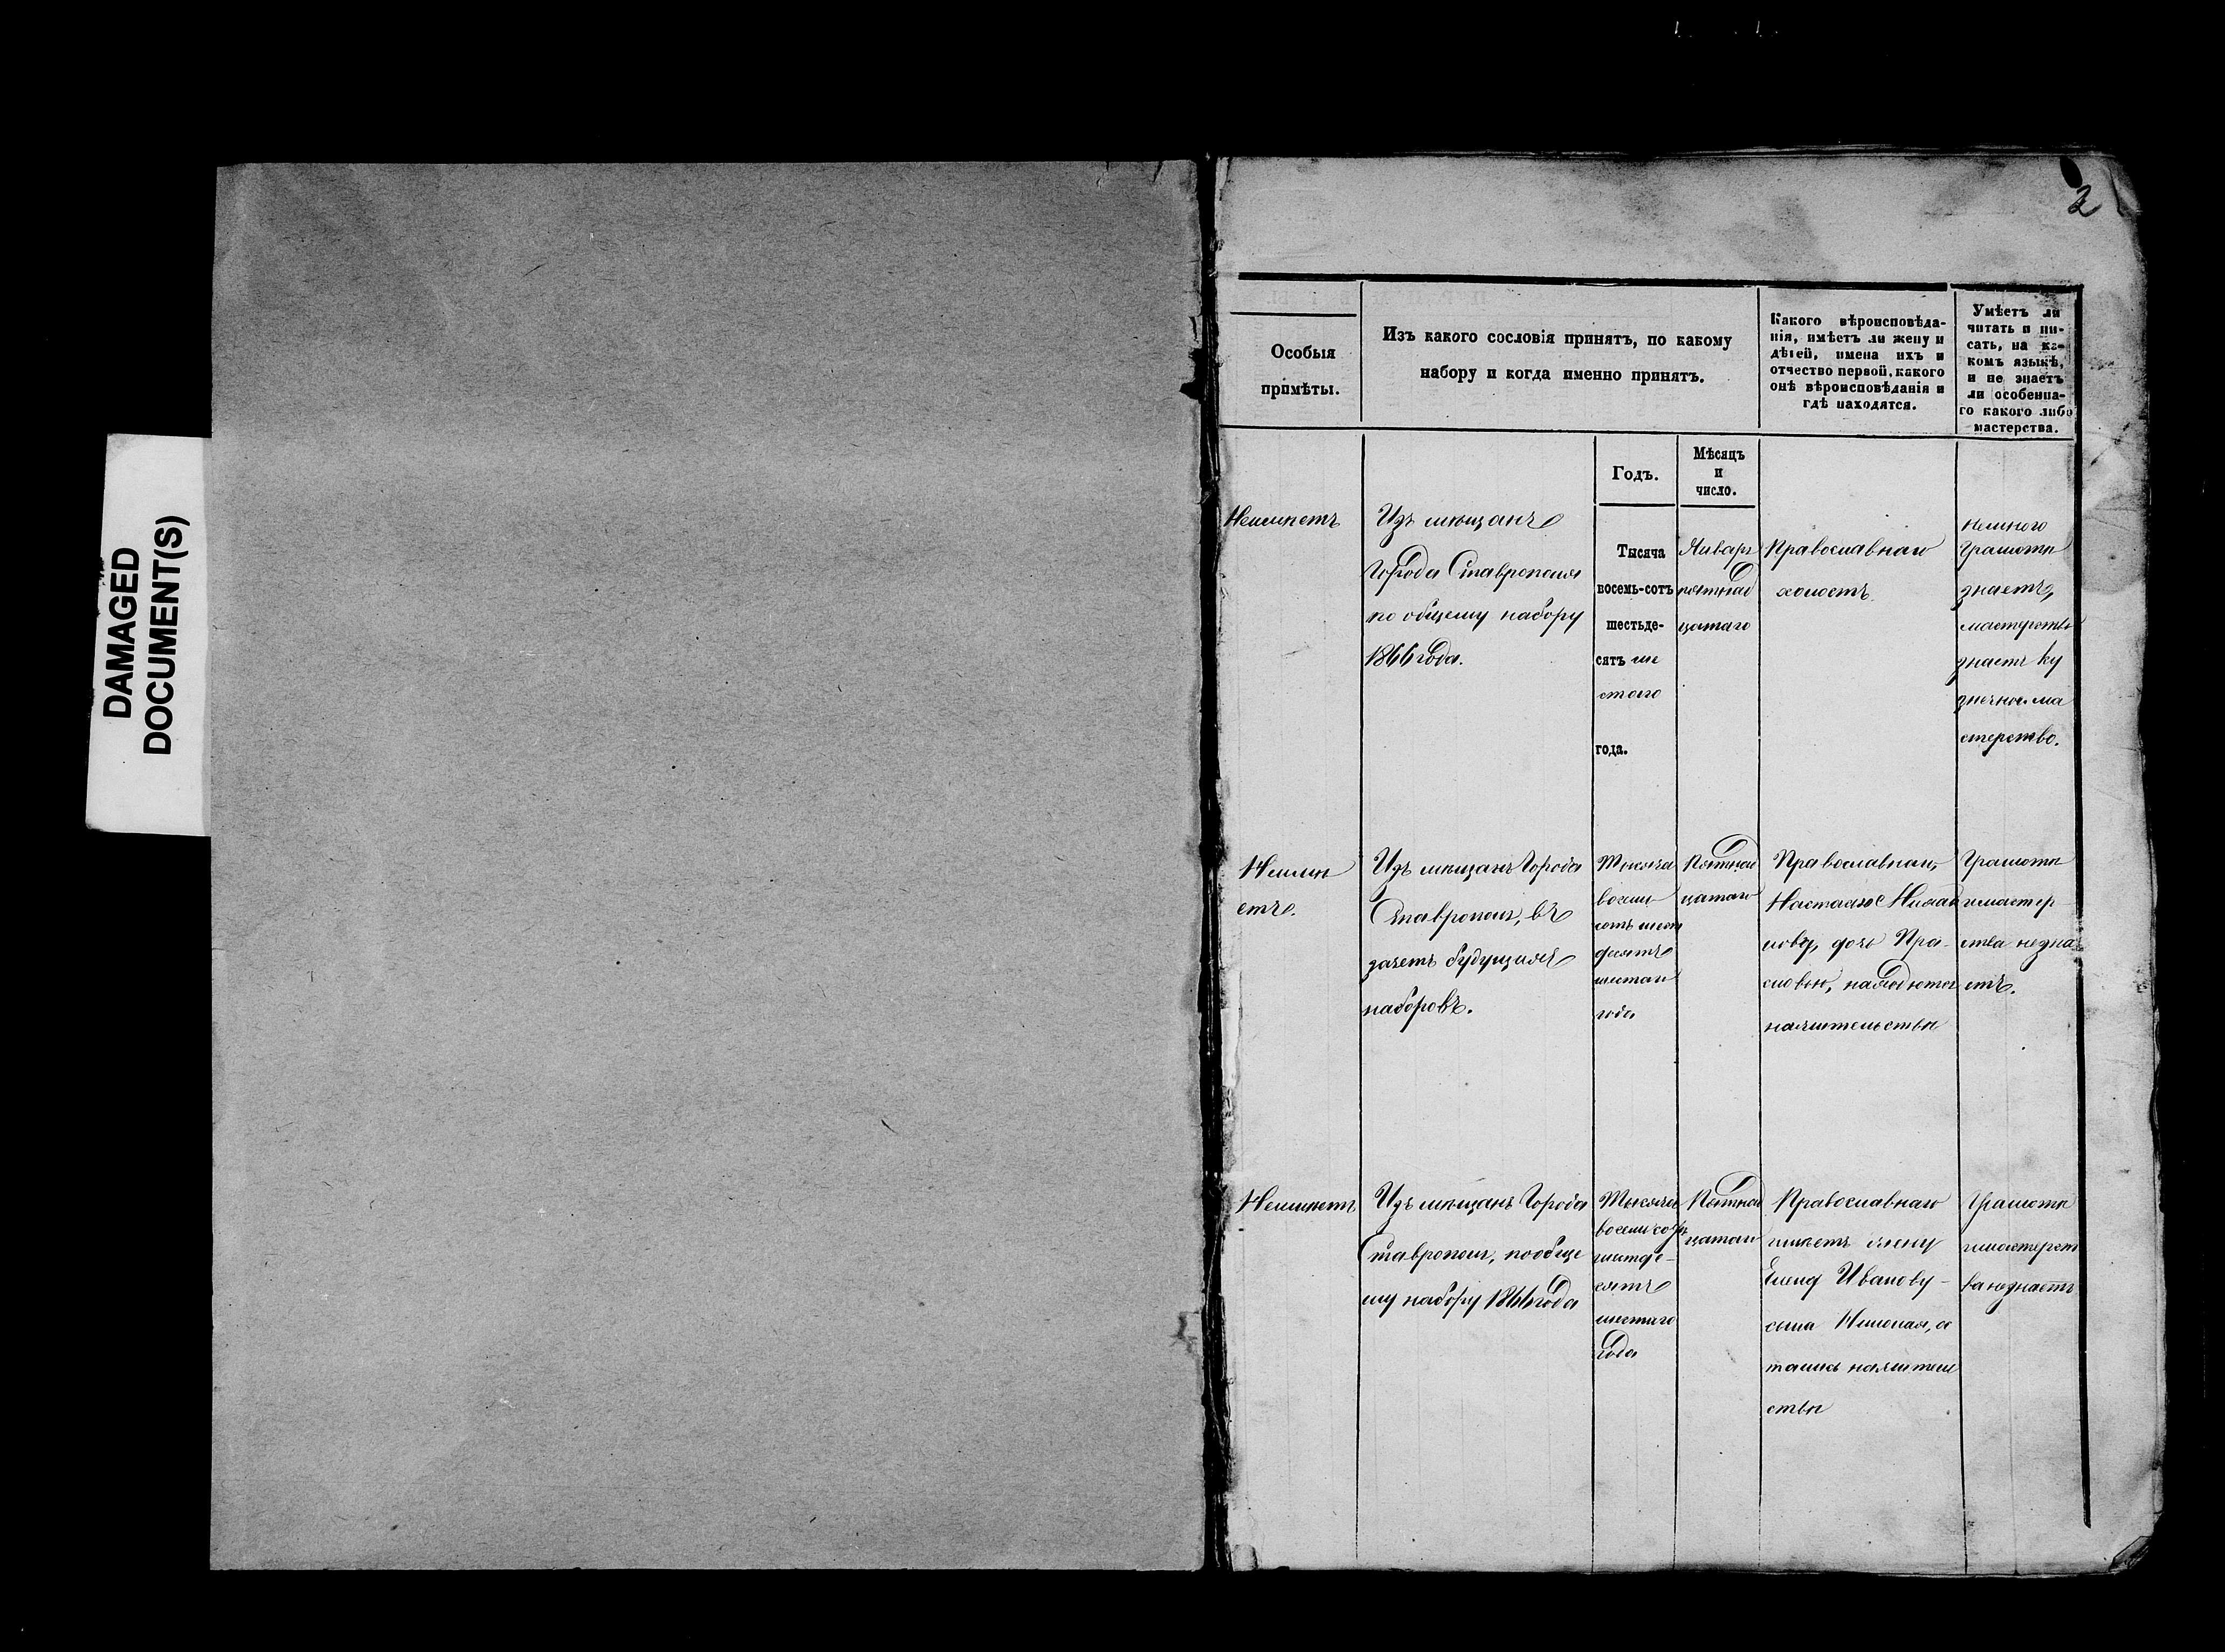 DAMAGED
DOCUMENT(S)
2
Особыя
примѣты.
Изъ какого сословія принятъ, по какому
набору и когда именно принятъ.
Какого вѣроисповѣда-
нія, имѣетъ ли жену и
дѣтей, имена ихъ и
отчество первой, какого
онѣ вѣроисповѣданія и
гдѣ находятся.
Умѣетъ ли
читать и пи-
сать, на ка-
комъ языкѣ,
и не знаетъ
ли особенна-
го какого либо
мастерства.
Годъ.
Мѣсяцъ
и
число.
Неимѣетъ
Изъ мѣщанъ
Города Ставрополя
по общему набору
1866 года.
Тысяча
восемь-сотъ
шестьде-
сятъ ше
стаго
года.
Январь
пятнад
цатаго
Православнаго
холостъ
немного
Грамоти
знаетъ,
мастерства
знаетъ ку
знечное ма
стерство.
Неимѣ
етъ.
Изъ мѣщанъ Города
Ставрополя, въ
зачетъ будущихъ
наборовъ.
Тысяча
восемь
сотъ шест
десятъ
шестаго
года
Пятнад
цатаго
Православнаго,
Настасью
дочь Пра-
сковью, находятся
нажительствѣ
Грамоти
имастер
ства незна
етъ.
Неимѣетъ
Изъ мѣщанъ Города
Ставрополя, пообще
му набору 1866 года
Тысяча
восемьсотъ
шестьде-
сятъ
шестаго
года
Пятнад
цатаго
Православнаго
имѣетъ жену
Елену Иванову-
сына Николая, ос
тались нажитель
ствѣ
Грамоти
имастерст
ванезнаетъ